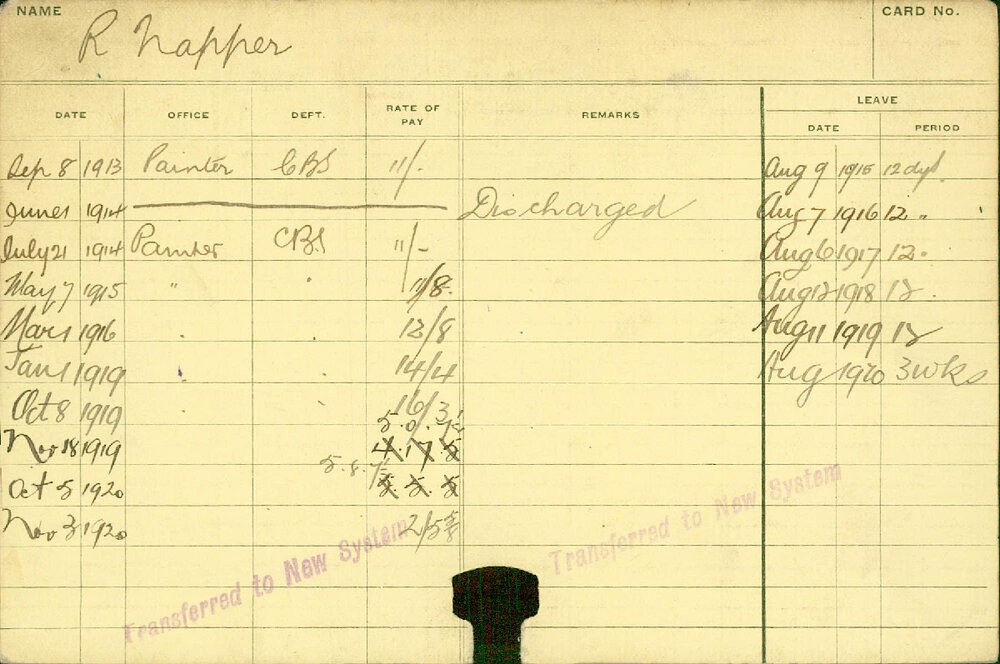 NAME CARD No.
R Napper
DATE OFFICE DEPT. RATE OF PAY REMARKS LEAVE
DATE PERIOD
Sep 8 1913 Painter CBS 11/- Aug 9 1915 12 dys.
June 1 1914 Discharged Aug 7 1916 12 "
July 21 1914 Painter CBS 11/- Aug 6 1917 12 "
May 7 1915 " " 11/8 Aug 12 1918 12
Mar 1 1916 " " 12/8 Aug 11 1919 12
Jan 1 1919 " " 14/4 Aug 1920 3 wks
Oct 8 1919 " 16/3
5.0.
Nov 18 1919 4.17.5
5.8.7½
Oct 5 1920 5.5.5
Nov 3 1920 2/5 5/8
Transferred to New System
Transferred to New System